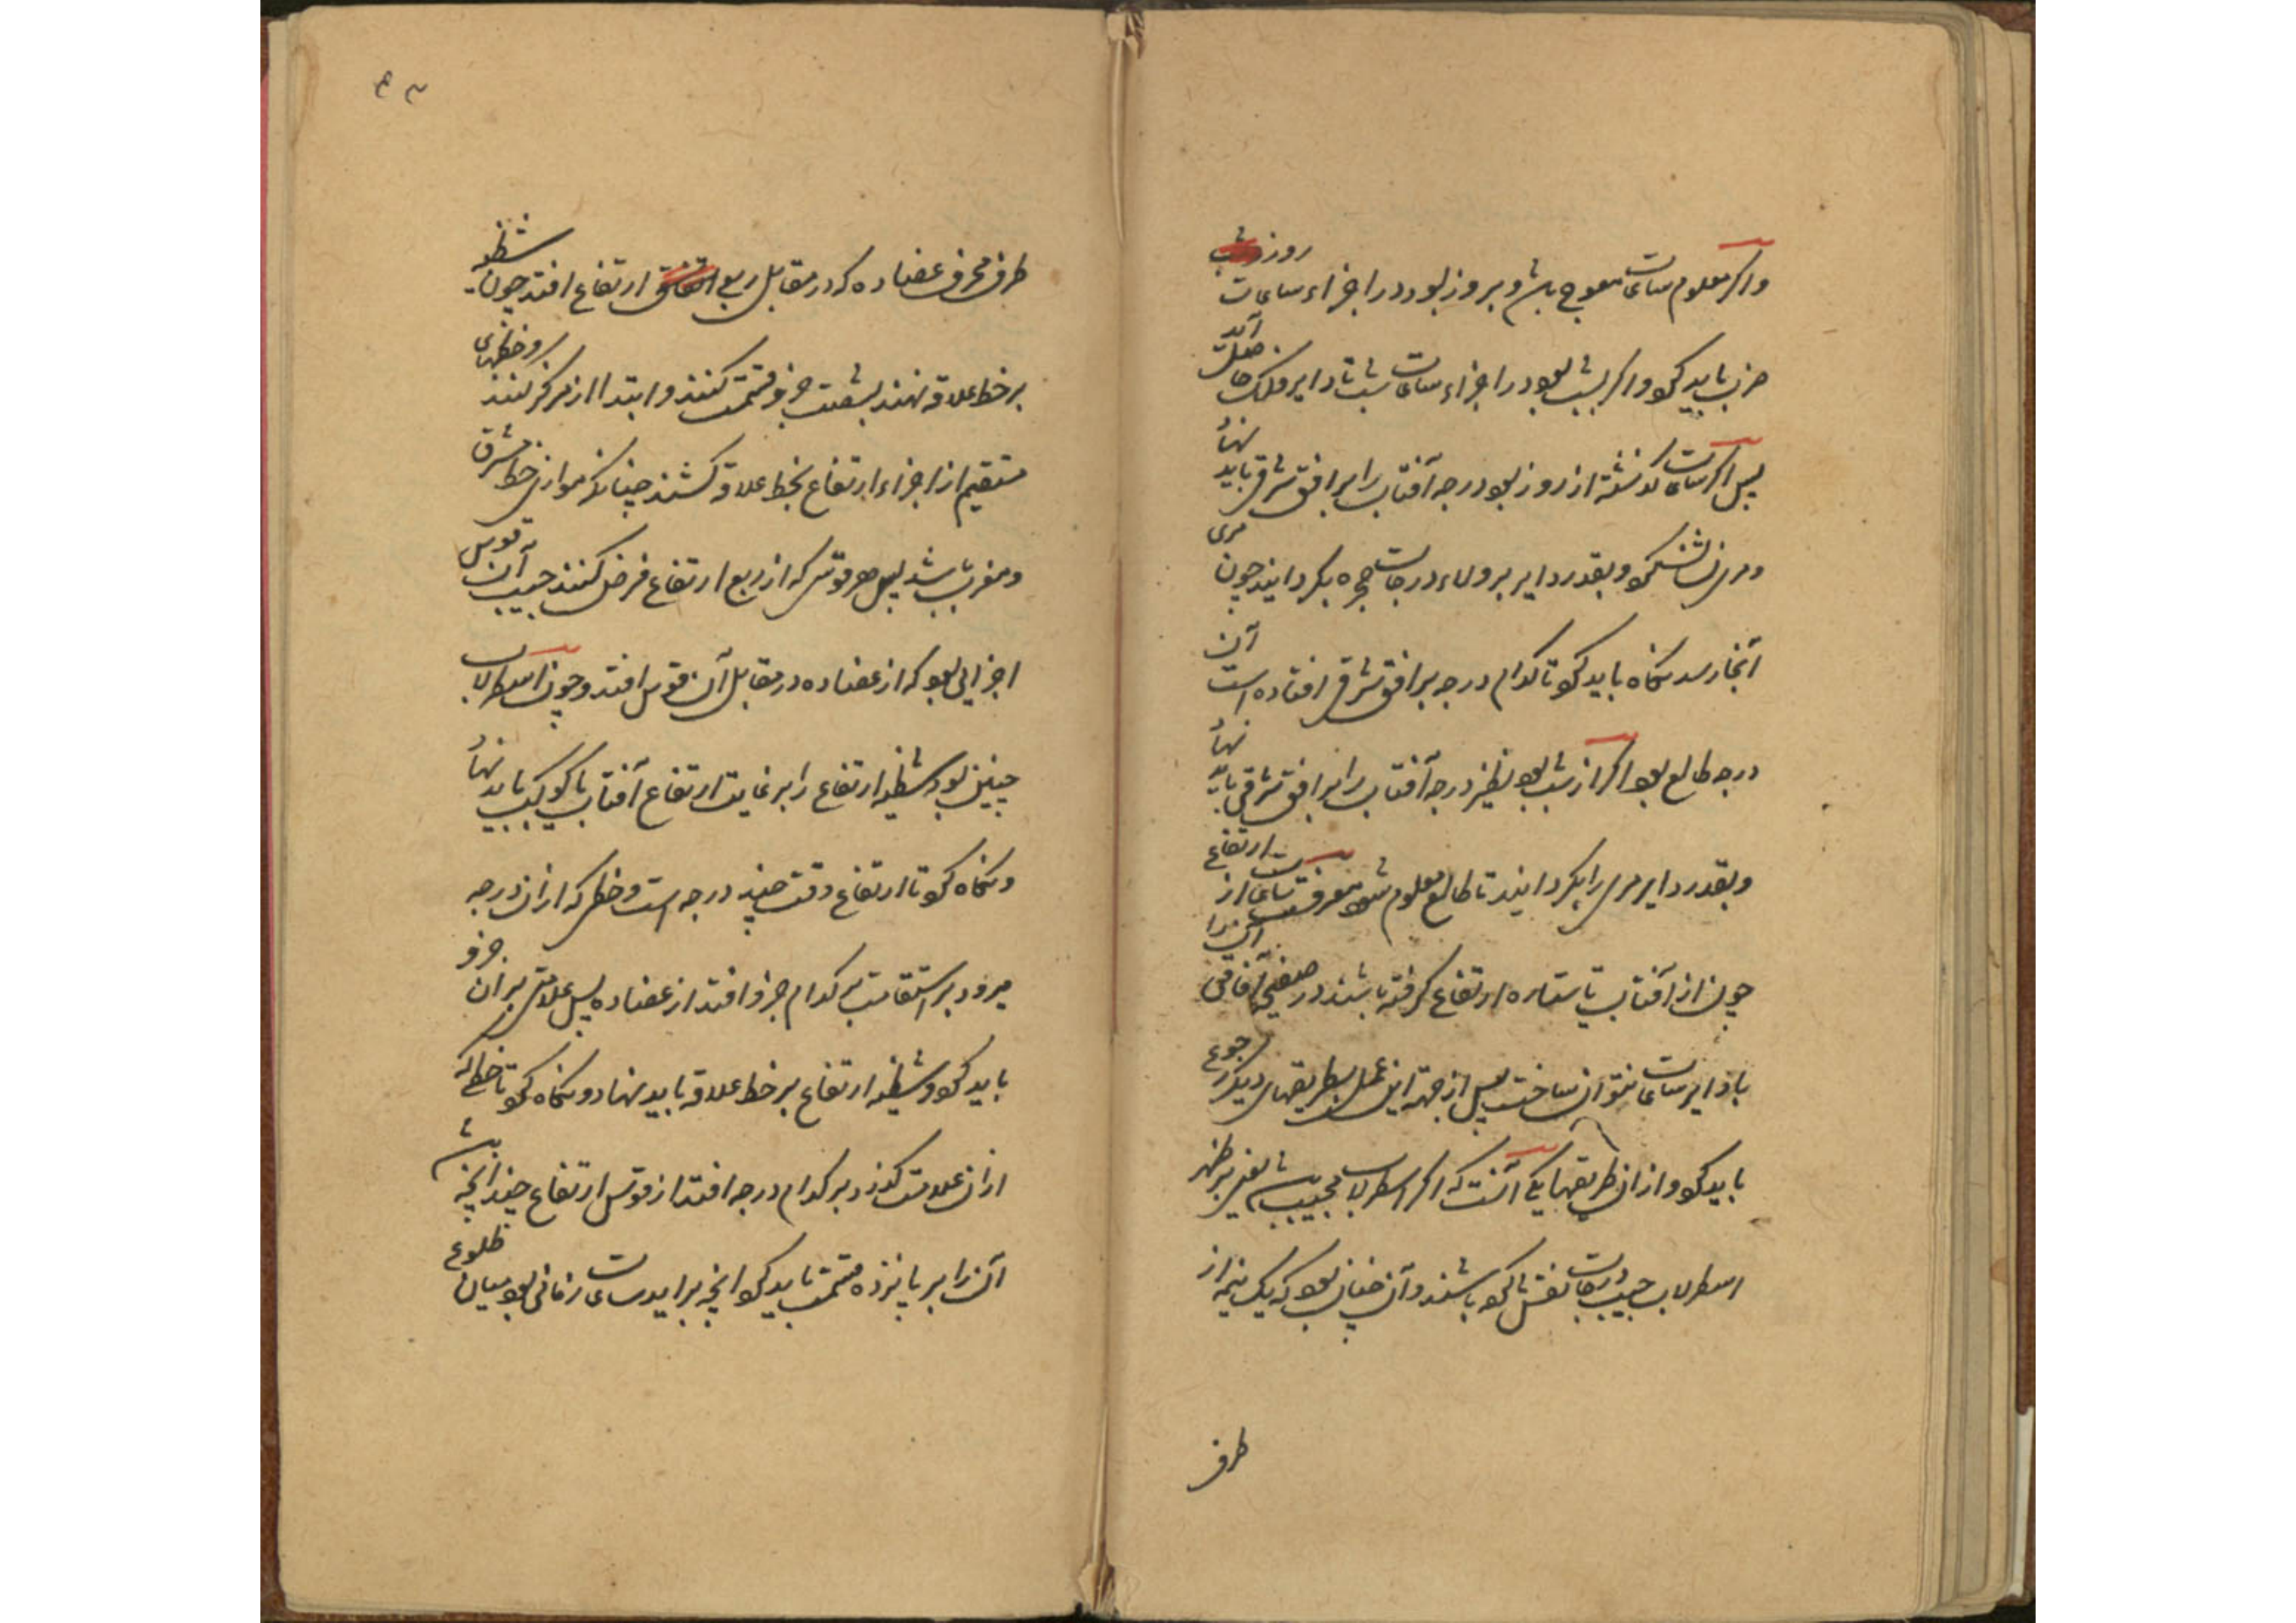 واکر معلوم ساعات معوج باشد و بروز بود در اجزاء ساعات روز
ضرب باید کرد و اکر بشب بود در اجزاء ساعات شب تا دایر فلک حاصل آید
پس اکر ساعات کذشته از روز بود درجه آفتاب را بر افق شرقی باید نهاد
و مری نشان کرد و بقدر دایر بر ولاء درجات حجره بکردانید چون مری
آنجا رسد نکاه باید کرد تا کدام درجه بر افق شرقی افتاده است آن
درجه طالع بود اکر از شب بود نظیر درجه آفتاب را بر افق شرقی باید نهاد
و بقدر دایر مری را بکردانید تا طالع معلوم شود معرفت ساعات از ارتفاع
چون از آفتاب یا ستاره ارتفاع کرفته باشند در صفیحه آفاقی آن را
با دایر ساعات نتوان ساخت پس از جهة این عمل بطریقهای دیکر رجوع
باید کرد و از ان طریقها یکی آنست که اکر اسطرلاب مجیب باشد یعنی بر ظهر
اسطرلاب جیب درجات نقش کرده باشند و آن چنان بود که یک نیمه از
طرف
۴۳
طرف محرف عضاده که در مقابل ربع ارتفاع افتد چون شظیه
بر خط علاقه نهند بشصت جزو قسمت کنند و ابتدا از مرکز کنند و خطهای
مستقیم از اجزاء ارتفاع بخط علاقه کشند چنانکه موازی خط مشرق
و مغرب باشد پس هر قوس که از ربع ارتفاع فرض کنند جیب آن قوس
اجزایی بود که از عضاده در مقابل آن قوس افتد و چون اسطرلاب
چنین بود شظیه ارتفاع را بر غایت ارتفاع آفتاب یا کوکب باید نهاد
و نکاه کرد تا ارتفاع وقت چند درجه است و خطی که از ان درجه
میرود بر استقامت بر کدام جزو افتد از عضاده پس علامتی بر ان جزو
باید کرد و شظیه ارتفاع بر خط علاقه باید نهاد و نکاه کرد تا خطی که
از ان علامت کذرد بر کدام درجه افتد از قوس ارتفاع چندانچه باشد
آن را بر پانزده قسمت باید کرد آنچه برآید ساعات زمانی بود میان طلوع